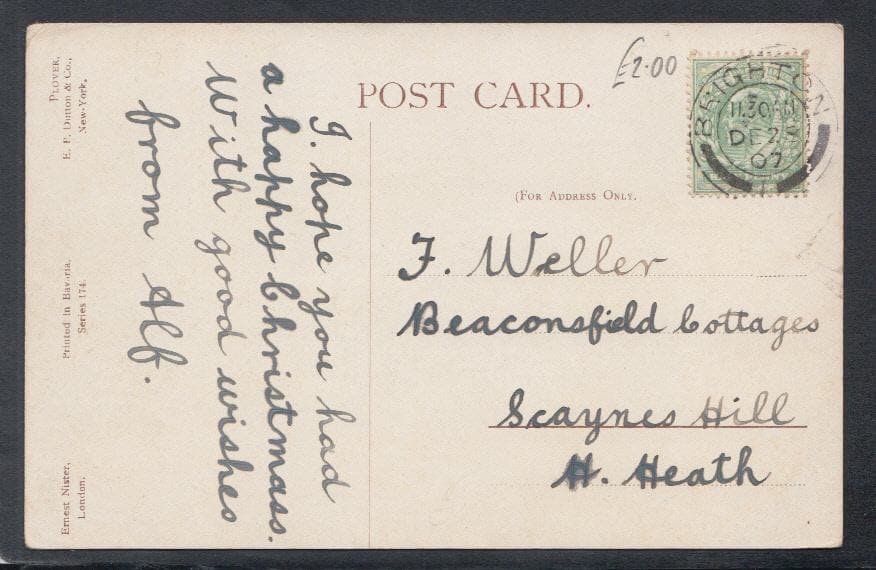 POST CARD.
£2.00
BRIGHTON
11.30AM
DE 2
07
(FOR ADDRESS ONLY.
F. Weller
Beaconsfield Cottages
Scaynes Hill
H. Heath
I. hope you had
a happy Christmass.
With good wishes
from Alf.
PLOVER.
E. P. Dutton & Co.,
New-York.
Printed in Bavaria.
Series 174.
Ernest Nister,
London.